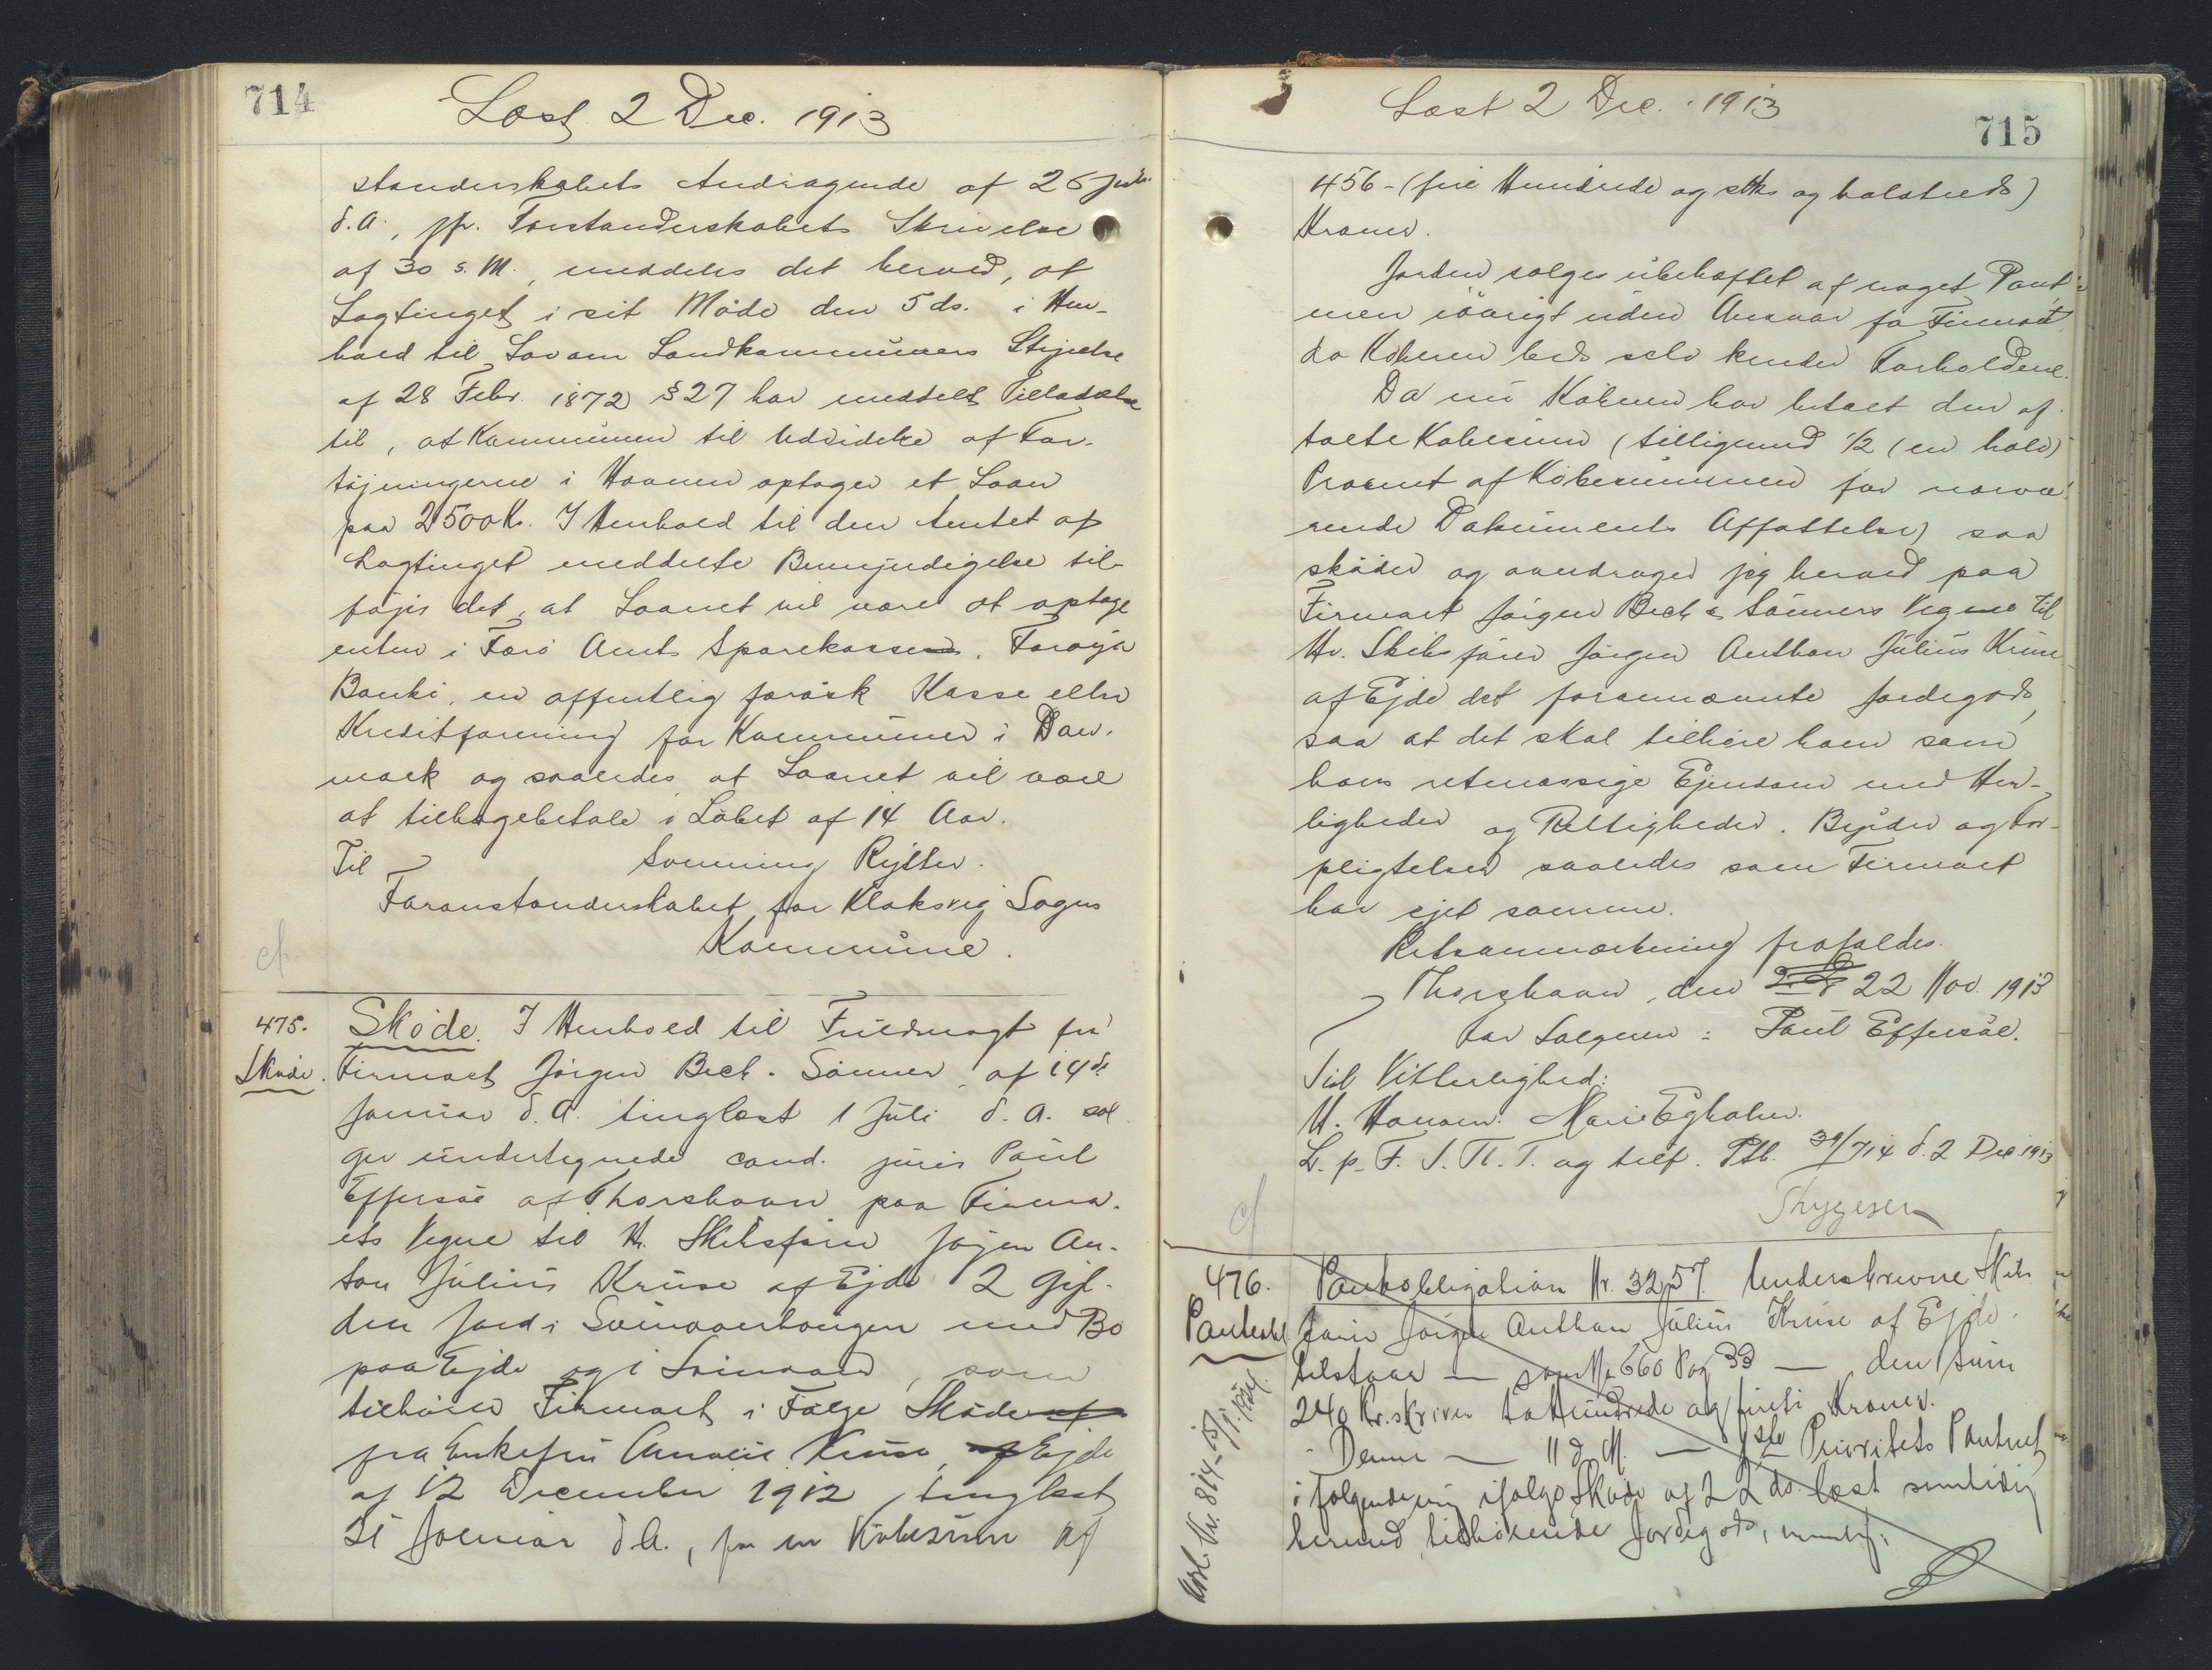 714
Læst 2 Dec. 1913
standerskabets Andragende af 26 Juli
d.A., jfr. Forstanderskabets Skrivelse
af 30 s.M., meddeles det herved, at
Lagtinget i sit Møde den 5 ds. i Hen-
hold til Lov om Landkommuners Styrelse
af 28 Febr. 1872 § 27 har meddelt Tilladelse
til, at Kommunen til Udvidelse af For-
tøjningerne i Havnen optager et Laan
paa 2500 Kr. I Henhold til den Amtet af
Lagtinget meddelte Bemyndigelse til-
føjes det, at Laanet vil være at optage
enten i Færø Amts Sparekasse, Førøja
Banki, en offentlig færøsk Kasse eller
Kreditforening for Kommuner i Dan-
mark og saaledes at Laanet vil være
at tilbagebetale i Løbet af 14 Aar.
Svenning Rytter.
Til
Foranstanderskabet for Klaksvig Sogns
Kommune.
cf
475.
Skøde.
Skøde. I Henhold til Fuldmagt fra
Firmaet Jørgen Bech & Sønner af 14de
Januar d.A. tinglæst 1 Juli d.A. sæl
ger undertegnede cand. juris Poul
Effersøe af Thorshavn paa Firma-
ets Vegne til Hr. Skibsfører Jørgen An-
ton Julius Kruse af Ejde 2 Gyl-
den Jord i Svinaarhaugen med Bø
paa Ejde og i Svinaard, som
tilhører Firmaet i Følge Skøde af
fra Enkefru Amalie Kruse, af Ejde
af 12 December 1912, tinglæst
21 Januar d.A., for en Købesum af
Læst 2 Dec. 1913
715
456 - (fire Hundrede og seks og halvtreds)
Kroner.
Jorden sælges ubehæftet af noget Pant
men iøvrigt uden Ansvar for Firmaet,
da Køberen selv kender Forholdene.
Da nu Køberen har betalt den af
talte Købesum (tilligemed 1/2 (en halv)
Procent af Købesummen for nærvæ
rende Dokuments Affattelse) saa
skøder og overdrager jeg herved paa
Firmaet Jørgen Bech & Sønners Vegne til
Hr. Skibsfører Jørgen Anthon Julius Kruse
af Ejde det forannævnte Jordegods,
saa at det skal tilhøre ham som
hans retmæssige Ejendom med Her-
ligheder og Rettigheder, Byrder og For-
pligtelser saaledes som Firmaet
har ejet samme.
Retsanmærkning frafaldes.
Thorshavn, den 22 Nov. 1913
For Sælgeren: Poul Effersøe.
Til Vitterlighed:
H. Hansen. Marie Egholm.
L. p. F. S. Th. T. og tilf. Ptb. 39/714 d. 2 Dec 1913
Thygesen
cf
476.
Panteobl.
Pantobligation Nr. 3257. Underskrevne Skibs
fører Jørgen Anthon Julius Kruse af Ejde
tilstaar — som Nr 660 Pag 33 — den Sum
240 Kr. skriver to Hundrede og firti Kroner.
Denne — 11 d. M. — 1ste Prioritets Panteret
i følgende mig ifølge Skøde af 22 ds. læst samtidig
hermed tilhørende Jordegods, nemlig: